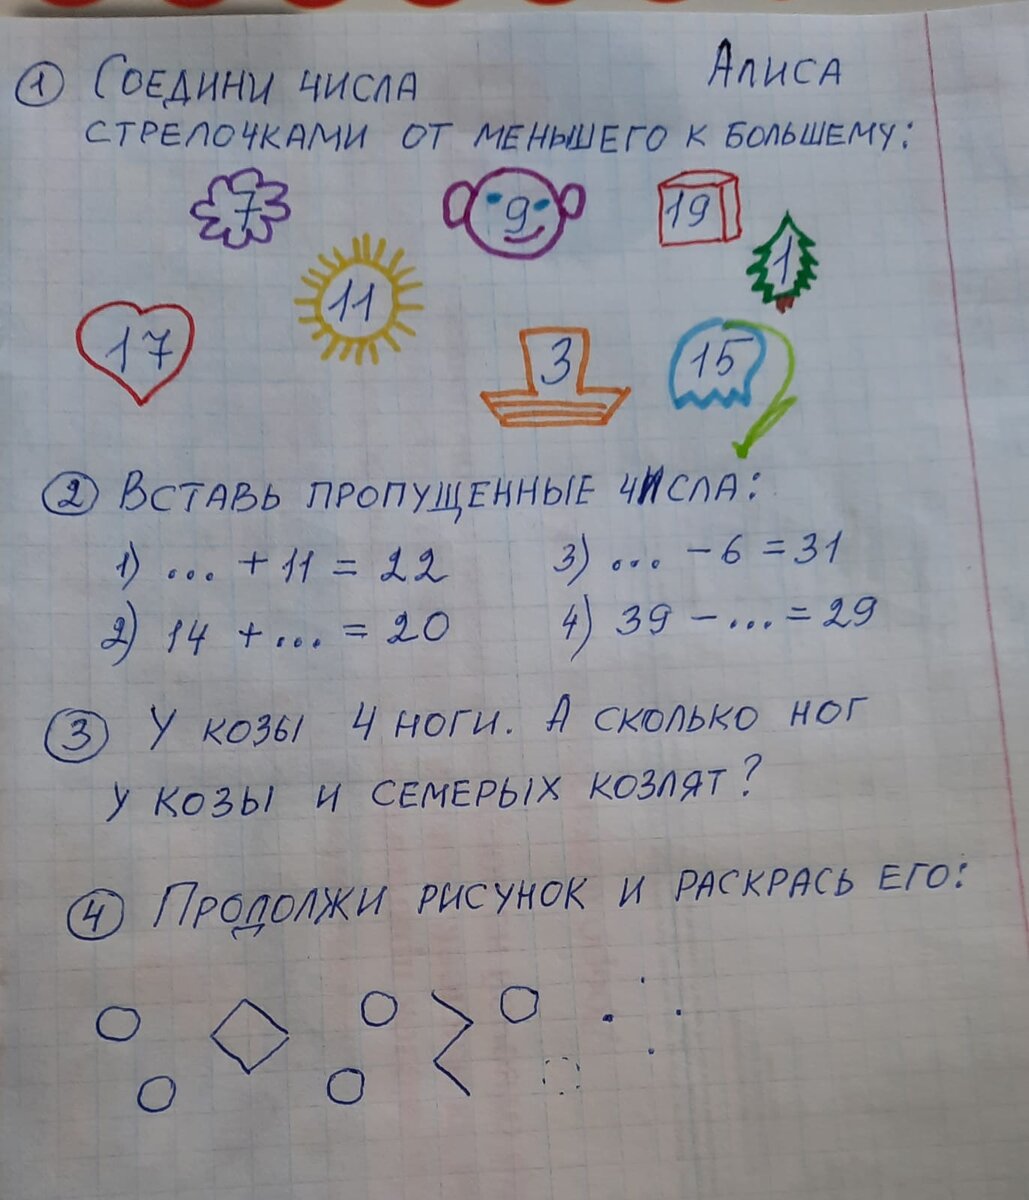 1 Соедини числа Алиса
стрелочками от меньшего к большему:
7 9 19
1
11
17 3 15
2 Вставь пропущенные числа:
1) ... + 11 = 22 3) ... - 6 = 31
2) 14 + ... = 20 4) 39 - ... = 29
3 У козы 4 ноги. А сколько ног
у козы и семерых козлят?
4 Продолжи рисунок и раскрась его: